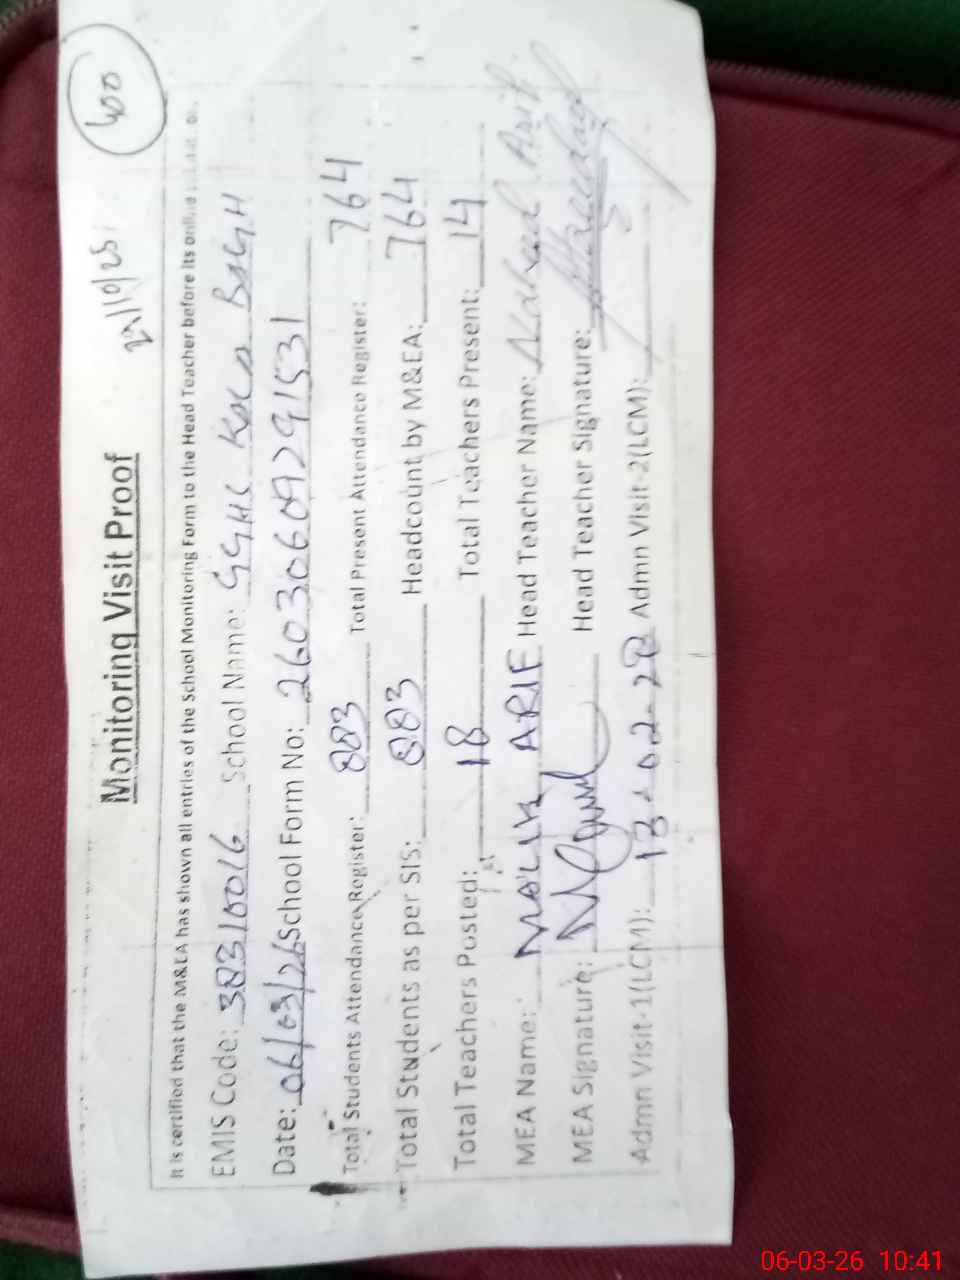 400
Monitoring Visit Proof
It is certified that the M&EA has shown all entries of the School Monitoring Form to the Head Teacher before its
EMIS Code: 38310016 School Name: GGHS BAGH
Date: 06/03/26 School Form No: 26030609291531
Total Students Attendance Register: 883 Total Present Attendance Register: 764
Total Students as per SIS: 883 Headcount by M&EA: 764
Total Teachers Posted: 18 Total Teachers Present: 14
MEA Name: MALIK ARIF Head Teacher Name: Asif
MEA Signature: Head Teacher Signature:
Admn Visit-1(LCM): 13-02-28 Admn Visit-2(LCM):
06-03-26 10:41